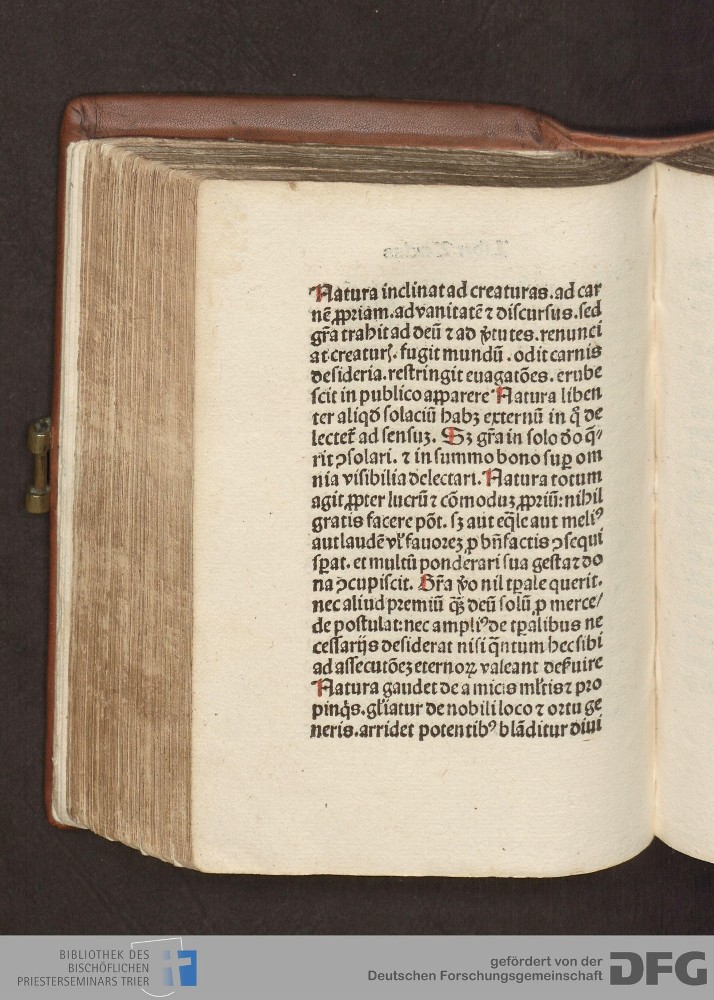 Natura inclinat ad creaturas. ad car
nē ꝓpriam. ad vanitatē ⁊ discursus. sed
gr̄a trahit ad deū ⁊ ad v̾tutes. renunci
at creaturꝭ. fugit mundū. odit carnis
desideria. restringit euagatōes. erube
scit in publico apparere Natura liben
ter aliqd̄ solaciū habꝫ externū in q̄ de
lectet̄ ad sensuꝫ. Sꝫ gr̄a in solo do q̄⸗
rit ꝯsolari. ⁊ in summo bono suꝑ om
nia visibilia delectari. Natura totum
agit ꝓpter lucrū ⁊ cōmoduꝫ ꝓpriū: nihil
gratis facere pōt. sꝫ aut eq̄le aut meliꝰ
aut laudē vl̾ fauoreꝫ ꝓ bn̄factis ꝯsequi
sꝑat. et multū ponderari sua gesta ⁊ do
na ꝯcupiscit. Gr̄a v̾o nil tꝑale querit.
nec aliud premiū qꝫ̄ deū solū ꝓ merce/
de postulat: nec ampliꝰ de tꝑalibus ne
cessarijs desiderat nisi q̄ntum hec sibi
ad assecutōeꝫ eternoꝝ valeant deẜuire
Natura gaudet de amicis ml̄tis ⁊ pro
pinq̄s. gl̄iatur de nobili loco ⁊ ortu ge
neris. arridet potentibꝰ blāditur diui
BIBLIOTHEK DES
BISCHÖFLICHEN
PRIESTERSEMINARS TRIER
gefördert von der
Deutschen Forschungsgemeinschaft
DFG